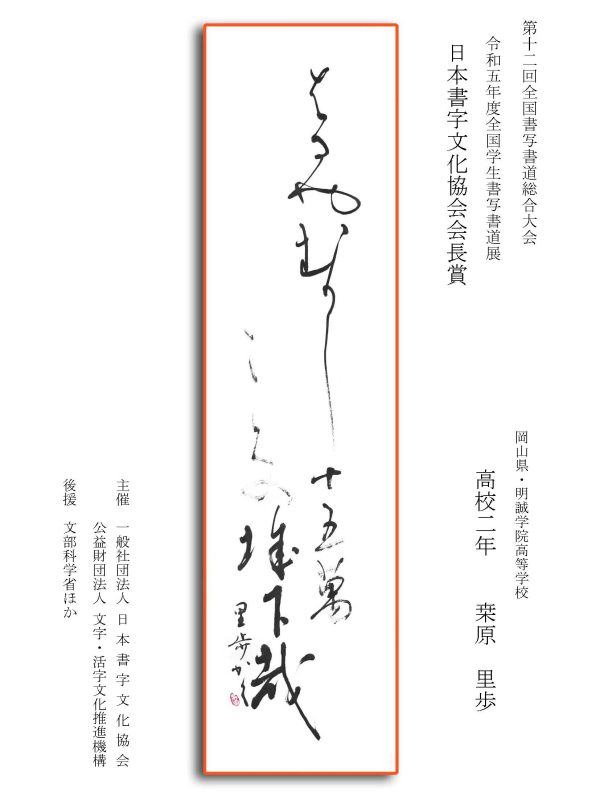 第十二回全国書写書道総合大会
令和五年度全国学生書写書道展
日本書字文化協会会長賞
岡山県・明誠学院高等学校
高校二年 桒原 里歩
はるやむかし十五萬
こくの城下哉
里歩かく
主催 一般社団法人 日本書字文化協会
公益財団法人 文字・活字文化推進機構
後援 文部科学省ほか